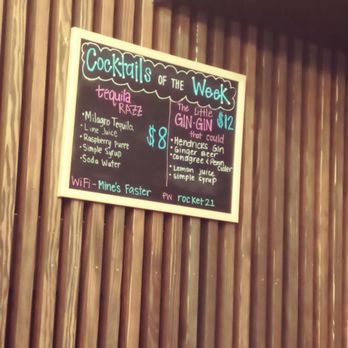 Cocktails OF THE Week
tequila
RAZZ
• Milagro Tequila
• Lime Juice
• Raspberry Puree
• Simple Syrup
• Soda Water
$8
The Little
GIN-GIN $12
that could
• Hendricks Gin
• Ginger Beer
Cider
• Lemon juice
• simple syrup
WiFi - Mine's Faster PW rocket21